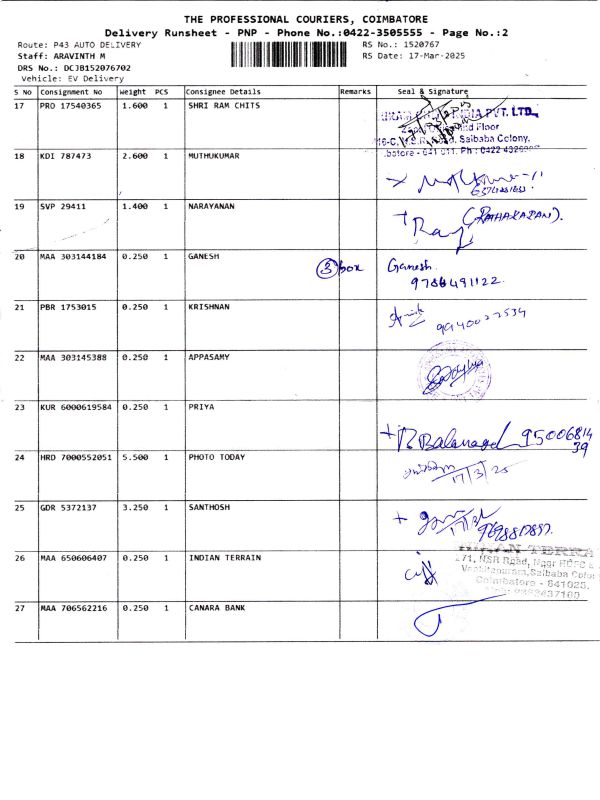 THE PROFESSIONAL COURIERS, COIMBATORE
Delivery Runsheet - PNP - Phone No.:0422-3505555 - Page No.:2
Route: P43 AUTO DELIVERY RS No.: 1520767
Staff: ARAVINTH M RS Date: 17-Mar-2025
DRS No.: DCJB152076702
Vehicle: EV Delivery
S No Consignment No Weight PCS Consignee Details Remarks Seal & Signature
17 PRO 17540365 1.600 1 SHRI RAM CHITS
INDIA PVT. LTD.
Floor
Saibaba Colony,
18 KDI 787473 2.600 1 MUTHUKUMAR
19 SVP 29411 1.400 1 NARAYANAN
20 MAA 303144184 0.250 1 GANESH 3 box Ganesh
9786491122.
21 PBR 1753015 0.250 1 KRISHNAN
9940027534
22 MAA 303145388 0.250 1 APPASAMY
23 KUR 6000619584 0.250 1 PRIYA
9500681439
24 HRD 7000552051 5.500 1 PHOTO TODAY
17/3/25
25 GDR 5372137 3.250 1 SANTHOSH
26 MAA 650606407 0.250 1 INDIAN TERRAIN
INDIAN TERRA
NSR Road, Near HDFC
Saibaba Colo
Coimbatore - 641025.
27 MAA 706562216 0.250 1 CANARA BANK